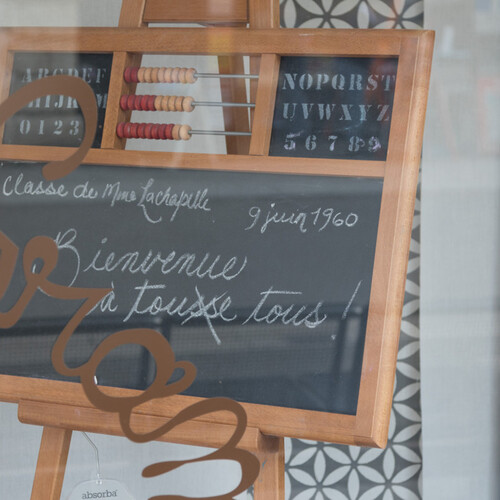 ABCDEF
GHIJKLM
0123
NOPQRST
UVWXYZ
56789
Classe de Mme Lachapelle
9 juin 1960
Bienvenue
à tousse tous !
absorba